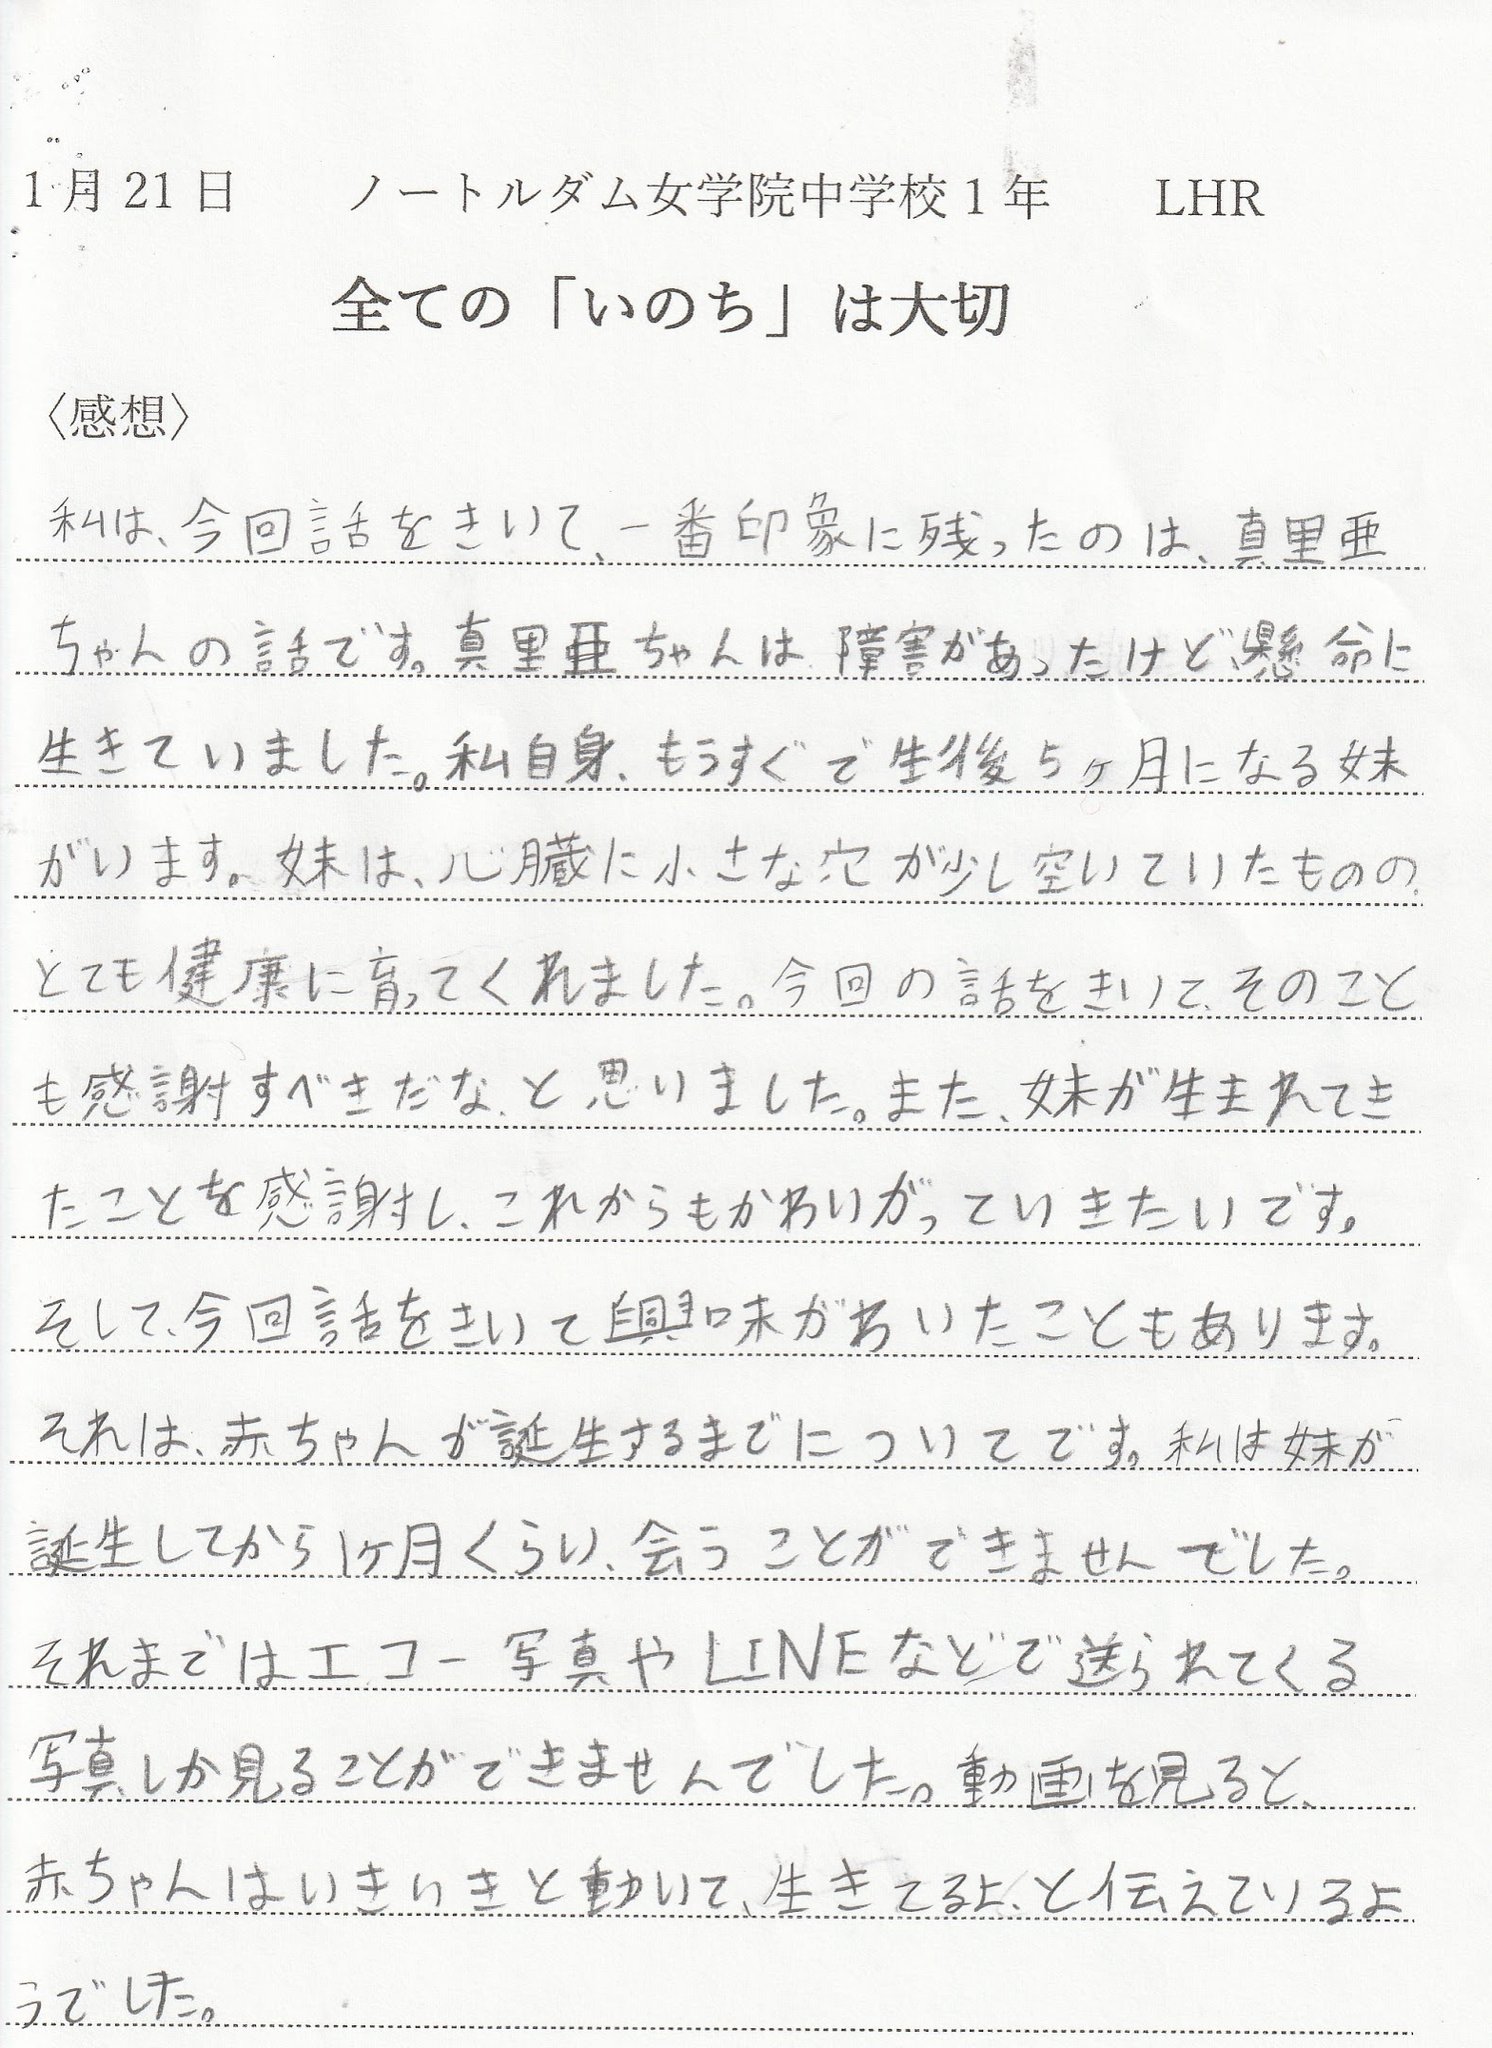 1月21日　ノートルダム女学院中学校1年　LHR
全ての「いのち」は大切
〈感想〉
私は、今回話をきいて、一番印象に残ったのは、真里亜
ちゃんの話です。真里亜ちゃんは、障害があったけど、懸命に
生きていました。私自身、もうすぐで生後5ヶ月になる妹
がいます。妹は、心臓に小さな穴が少し空いていたものの、
とても健康に育ってくれました。今回の話をきいて、そのこと
も感謝すべきだな、と思いました。また、妹が生まれてき
たことを感謝し、これからもかわいがっていきたいです。
そして、今回話をきいて興味がわいたこともあります。
それは、赤ちゃんが誕生するまでについてです。私は妹が
誕生してから1ヶ月くらい、会うことができませんでした。
それまではエコー写真やLINEなどで送られてくる
写真しか見ることができませんでした。動画を見ると、
赤ちゃんはいきいきと動いて、生きてるよ、と伝えているよ
うでした。